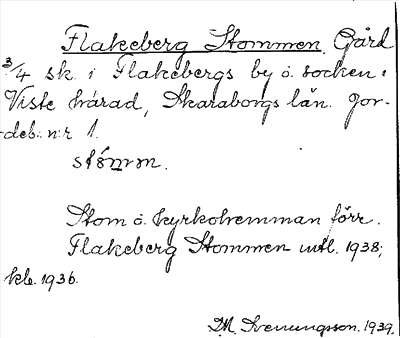 Flakeberg Stommen. Gård
3/4 sk. i Flakebergs by o. socken i
Viste härad, Skaraborgs län. Jor-
deb. n:r 1.
stómm.
Stom o. kyrkohemman förr.
Flakeberg Stommen mtl. 1938;
kb. 1936.
M. Svenungsson. 1939.